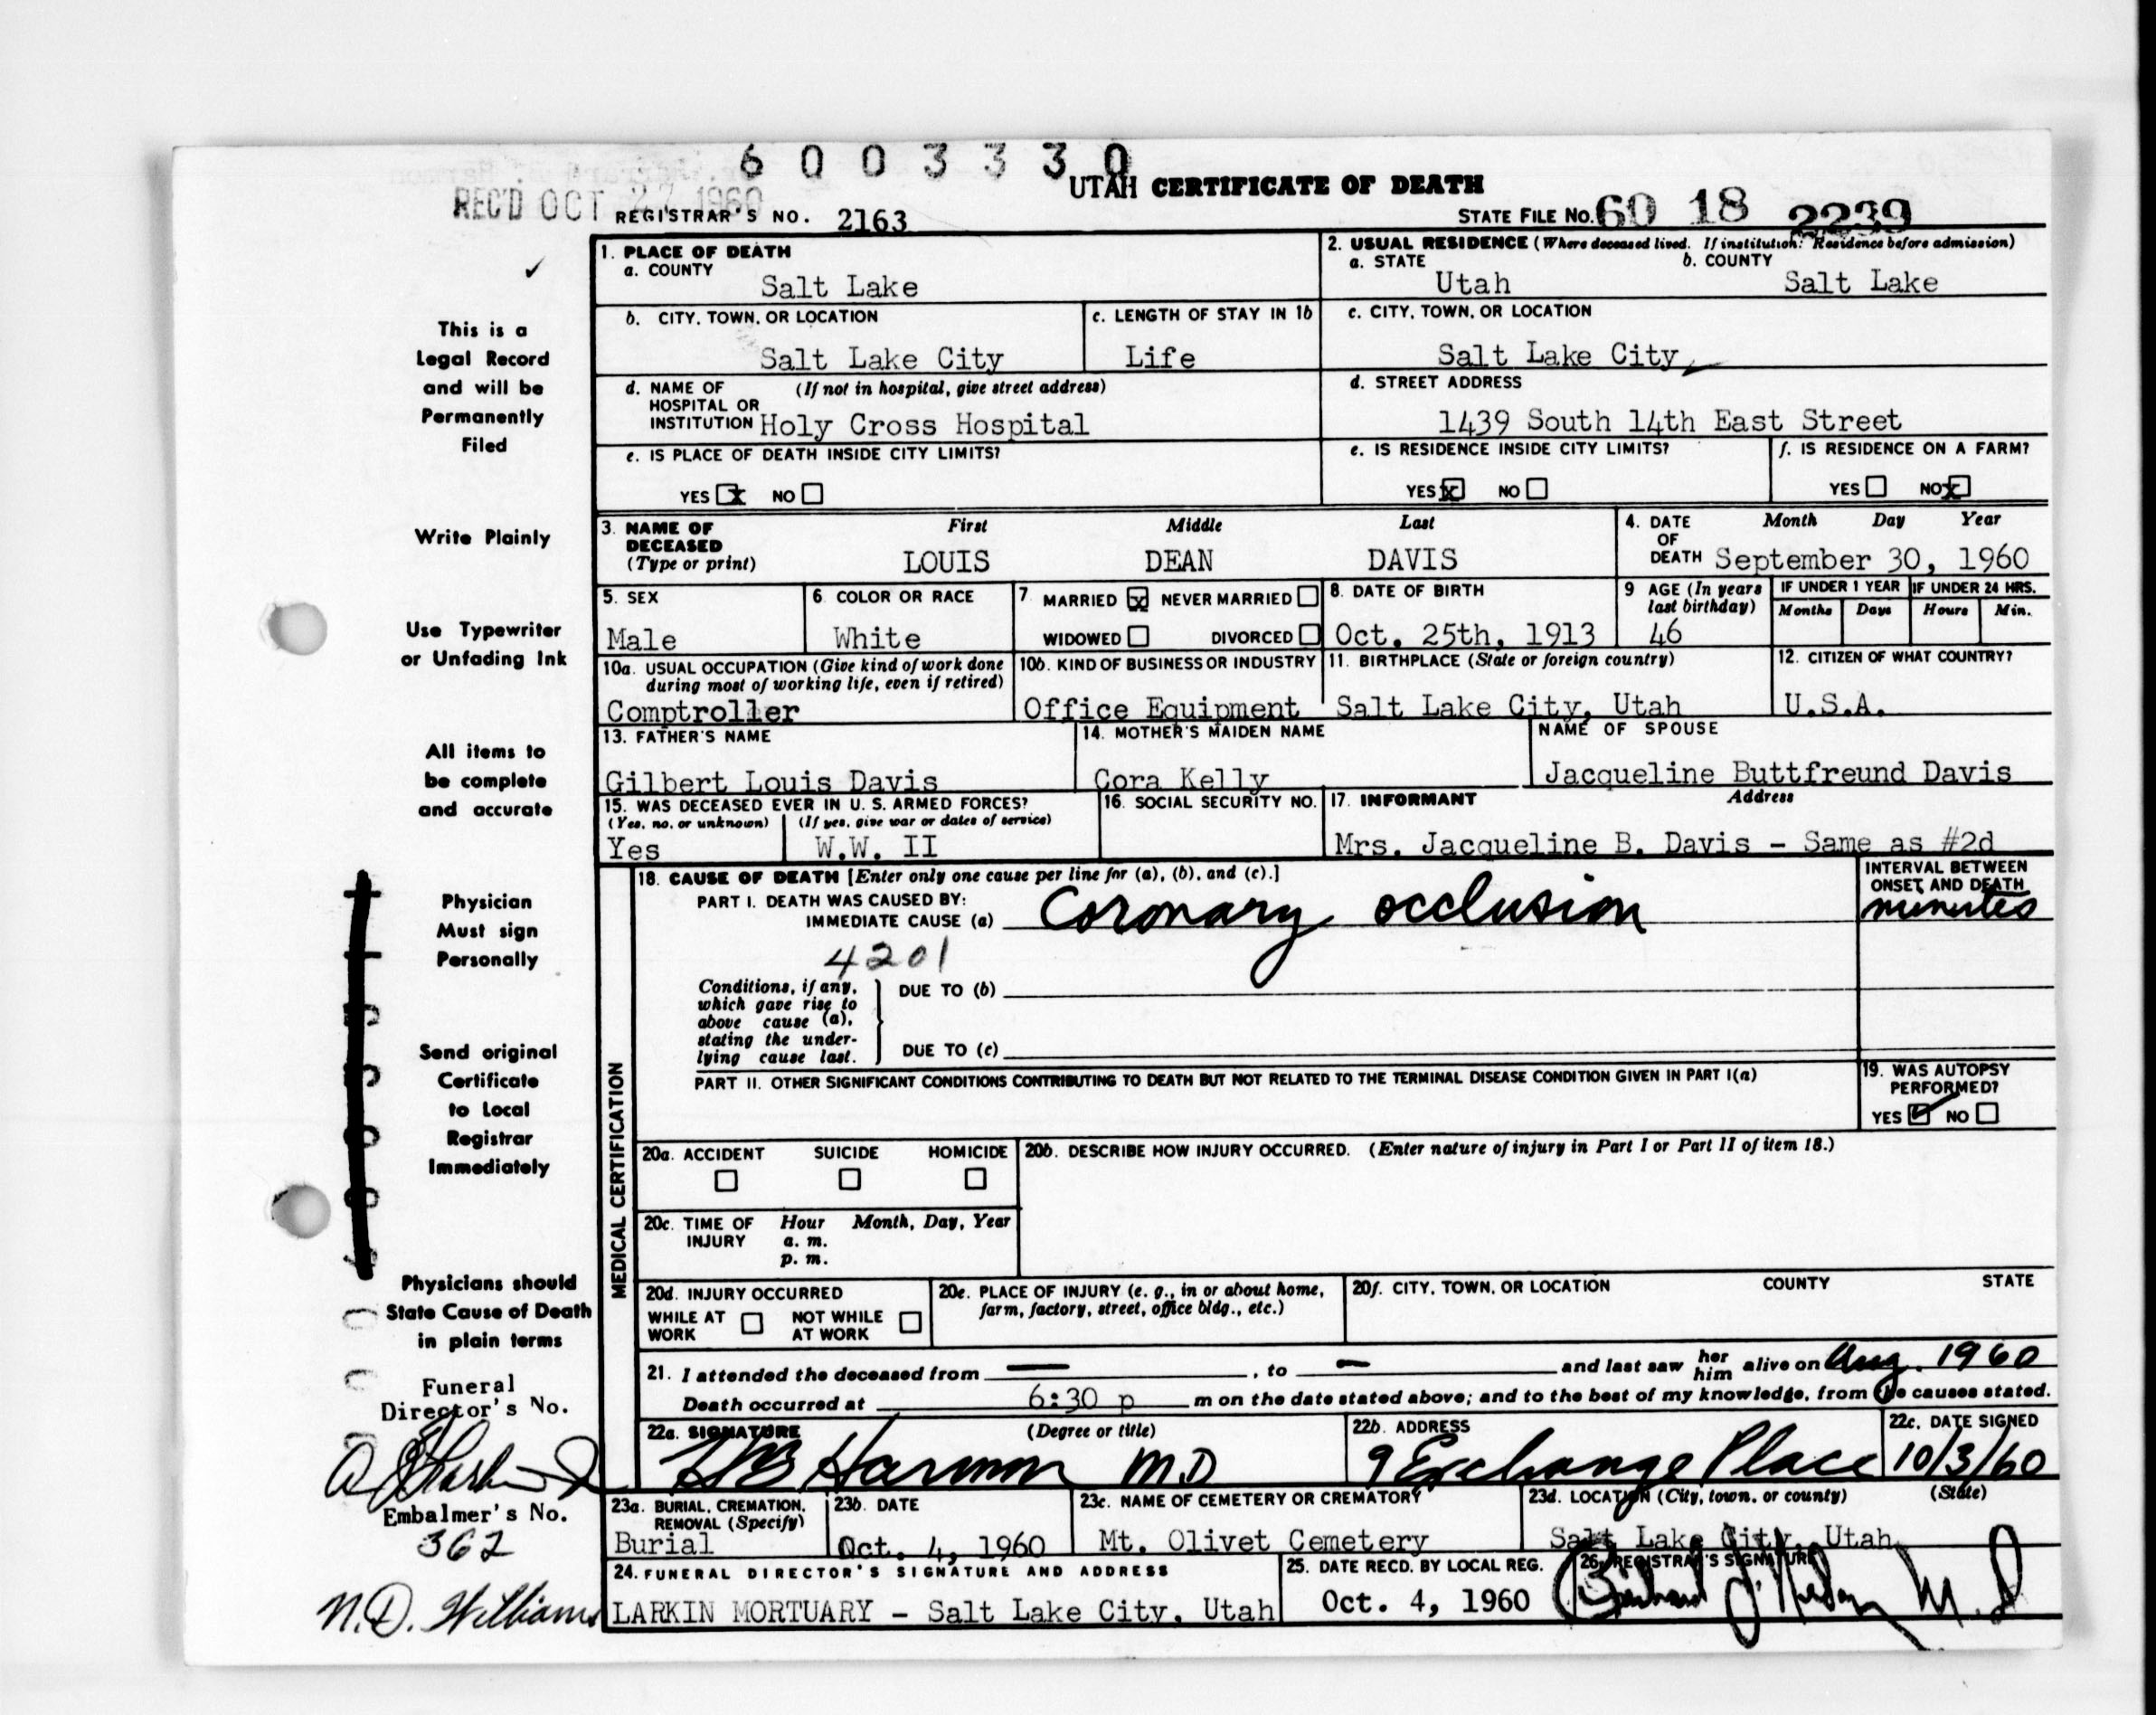 6 0 0 3 3 3 0
REC'D OCT 27 1960
UTAH CERTIFICATE OF DEATH
REGISTRAR'S NO. 2163
STATE FILE NO. 60 18 2239
1. PLACE OF DEATH
a. COUNTY
Salt Lake
2. USUAL RESIDENCE (Where deceased lived. If institution: Residence before admission)
a. STATE b. COUNTY
Utah Salt Lake
b. CITY, TOWN, OR LOCATION
Salt Lake City
c. LENGTH OF STAY IN 1b
Life
c. CITY, TOWN, OR LOCATION
Salt Lake City
d. NAME OF (If not in hospital, give street address)
HOSPITAL OR
INSTITUTION Holy Cross Hospital
d. STREET ADDRESS
1439 South 14th East Street
e. IS PLACE OF DEATH INSIDE CITY LIMITS?
YES x NO
e. IS RESIDENCE INSIDE CITY LIMITS?
YES x NO
f. IS RESIDENCE ON A FARM?
YES NO x
3. NAME OF
DECEASED
(Type or print)
First Middle Last
LOUIS DEAN DAVIS
4. DATE
OF
DEATH
Month Day Year
September 30, 1960
5. SEX
Male
6. COLOR OR RACE
White
7. MARRIED x NEVER MARRIED
WIDOWED DIVORCED
8. DATE OF BIRTH
Oct. 25th, 1913
9 AGE (In years
last birthday)
46
IF UNDER 1 YEAR
Months Days
IF UNDER 24 HRS.
Hours Min.
10a. USUAL OCCUPATION (Give kind of work done
during most of working life, even if retired)
Comptroller
10b. KIND OF BUSINESS OR INDUSTRY
Office Equipment
11. BIRTHPLACE (State or foreign country)
Salt Lake City, Utah
12. CITIZEN OF WHAT COUNTRY?
U.S.A.
13. FATHER'S NAME
Gilbert Louis Davis
14. MOTHER'S MAIDEN NAME
Cora Kelly
NAME OF SPOUSE
Jacqueline Buttfreund Davis
15. WAS DECEASED EVER IN U. S. ARMED FORCES?
(Yes, no, or unknown) (If yes, give war or dates of service)
Yes W.W. II
16. SOCIAL SECURITY NO.
17. INFORMANT Address
Mrs. Jacqueline B. Davis - Same as #2d
MEDICAL CERTIFICATION
18. CAUSE OF DEATH [Enter only one cause per line for (a), (b), and (c).]
PART I. DEATH WAS CAUSED BY:
IMMEDIATE CAUSE (a) Coronary occlusion
INTERVAL BETWEEN
ONSET AND DEATH
minutes
4201
Conditions, if any,
which gave rise to
above cause (a),
stating the under-
lying cause last.
DUE TO (b)
DUE TO (c)
PART II. OTHER SIGNIFICANT CONDITIONS CONTRIBUTING TO DEATH BUT NOT RELATED TO THE TERMINAL DISEASE CONDITION GIVEN IN PART I(a)
19. WAS AUTOPSY
PERFORMED?
YES ✓ NO
20a. ACCIDENT SUICIDE HOMICIDE
20b. DESCRIBE HOW INJURY OCCURRED. (Enter nature of injury in Part I or Part II of item 18.)
20c. TIME OF Hour Month, Day, Year
INJURY a. m.
p. m.
20d. INJURY OCCURRED
WHILE AT NOT WHILE
WORK AT WORK
20e. PLACE OF INJURY (e. g., in or about home,
farm, factory, street, office bldg., etc.)
20f. CITY, TOWN, OR LOCATION COUNTY STATE
21. I attended the deceased from — , to — and last saw her him alive on Aug. 1960
Death occurred at 6:30 p m on the date stated above; and to the best of my knowledge, from the causes stated.
22a. SIGNATURE (Degree or title)
Harmon M.D
22b. ADDRESS
9 Exchange Place
22c. DATE SIGNED
10/3/60
23a. BURIAL, CREMATION,
REMOVAL (Specify)
Burial
23b. DATE
Oct. 4, 1960
23c. NAME OF CEMETERY OR CREMATORY
Mt. Olivet Cemetery
23d. LOCATION (City, town, or county) (State)
Salt Lake City, Utah
24. FUNERAL DIRECTOR'S SIGNATURE AND ADDRESS
LARKIN MORTUARY - Salt Lake City, Utah
25. DATE RECD. BY LOCAL REG.
Oct. 4, 1960
26. REGISTRAR'S SIGNATURE
✓
This is a
Legal Record
and will be
Permanently
Filed
Write Plainly
Use Typewriter
or Unfading Ink
All items to
be complete
and accurate
Physician
Must sign
Personally
Send original
Certificate
to Local
Registrar
Immediately
Physicians should
State Cause of Death
in plain terms
Funeral
Director's No.
Embalmer's No.
362
N.D. Williams